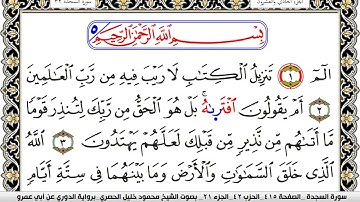 الجزء الحادي والعشرون
سورة السجدة ٣٢
بِسْمِ اللَّهِ الرَّحْمَٰنِ الرَّحِيمِ
الٓمٓ ١ تَنزِيلُ الْكِتَابِ لَا رَيْبَ فِيهِ مِن رَّبِّ الْعَالَمِينَ
٢ أَمْ يَقُولُونَ افْتَرَىٰهُ بَلْ هُوَ الْحَقُّ مِن رَّبِّكَ لِتُنذِرَ قَوْمًا
مَّا أَتَىٰهُم مِّن نَّذِيرٍ مِّن قَبْلِكَ لَعَلَّهُمْ يَهْتَدُونَ ٣ اللَّهُ
الَّذِي خَلَقَ السَّمَٰوَٰتِ وَالْأَرْضَ وَمَا بَيْنَهُمَا فِي سِتَّةِ أَيَّامٍ
سورة السجدة _ الصفحة ٤١٥ الحزب ٤٢ _ الجزء ٢١ _ بصوت الشيخ محمود خليل الحصري _ برواية الدوري عن أبي عمرو